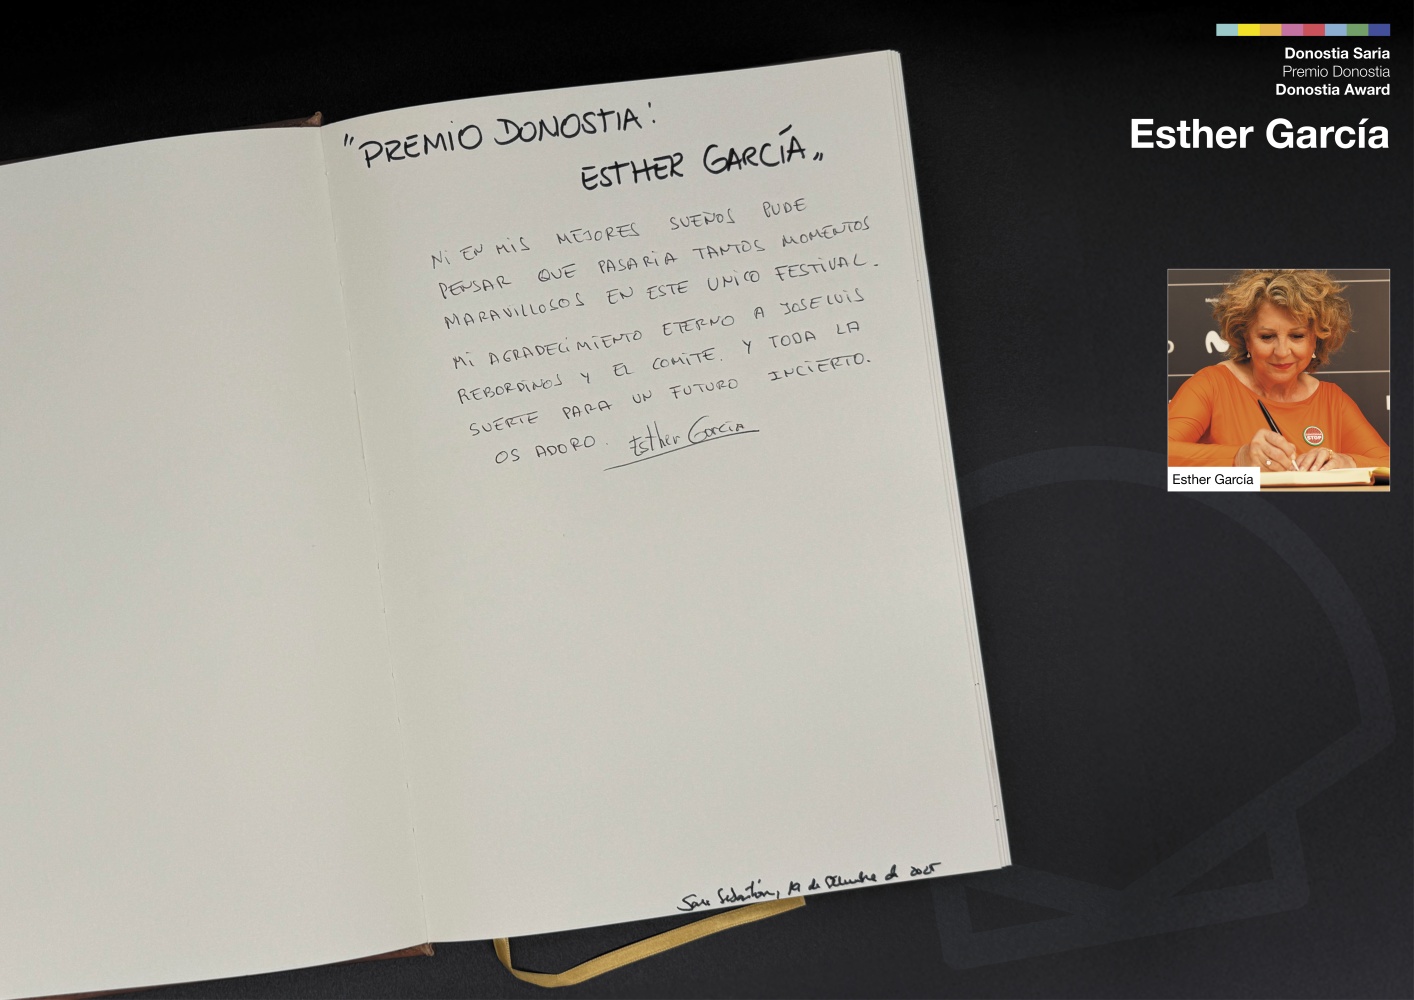 Donostia Saria
Premio Donostia
Donostia Award
Esther García
"PREMIO DONOSTIA:
ESTHER GARCÍA"
NI EN MIS MEJORES SUEÑOS PUDE
PENSAR QUE PASARIA TANTOS MOMENTOS
MARAVILLOSOS EN ESTE UNICO FESTIVAL.
MI AGRADECIMIENTO ETERNO A JOSE LUIS
REBORDINOS Y EL COMITE. Y TODA LA
SUERTE PARA UN FUTURO INCIERTO.
OS ADORO. Esther García
San Sebastián, 19 de de 2025
STOP
Esther García